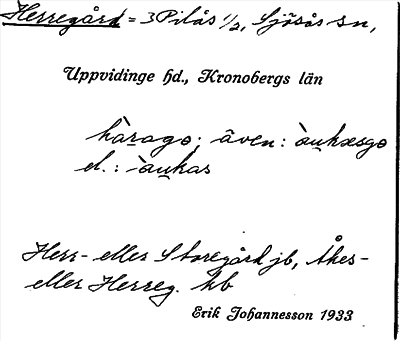 Herregård = 3 Pilås 1/2, Sjösås sn,
Uppvidinge hd., Kronobergs län
hàrago; även: àukæsgo
el.: àukas
Herr- eller Storegård jb, Åkes-
eller Herreg. kb
Erik Johannesson 1933